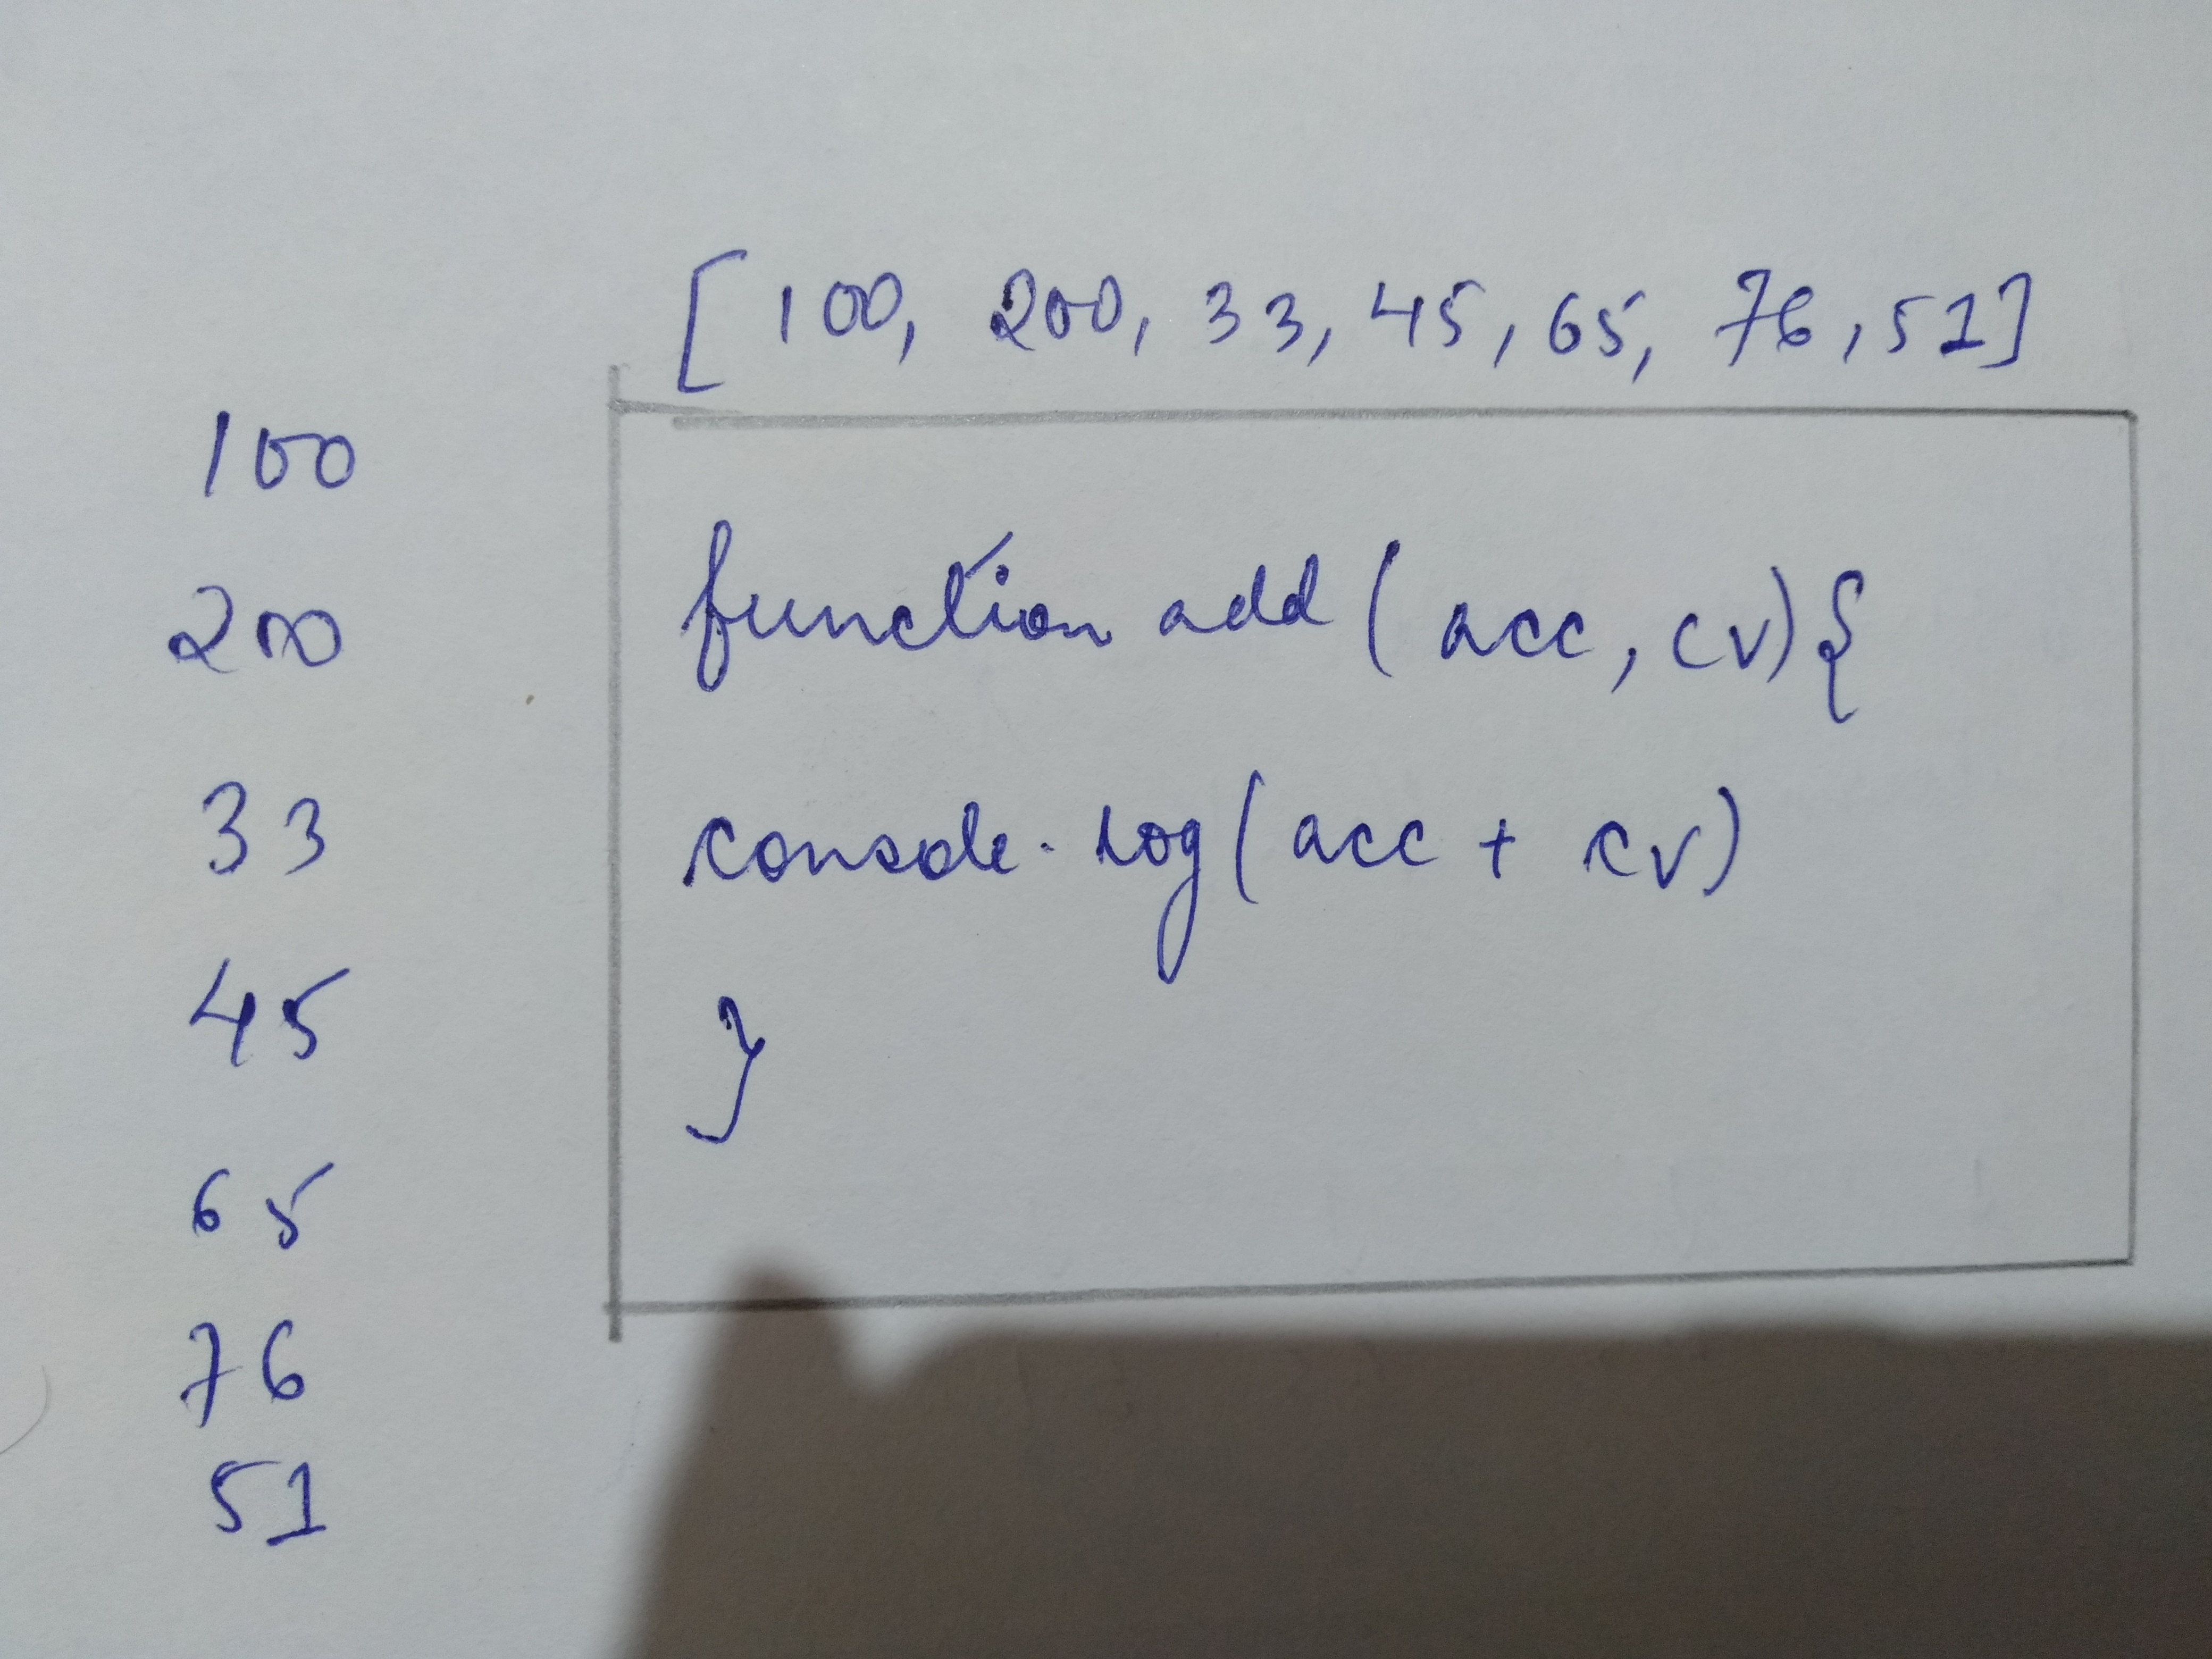 [100, 200, 33, 45, 65, 76, 51]
100
200
33
45
65
76
51
function add (acc, cv) {
console.log(acc + cv)
}